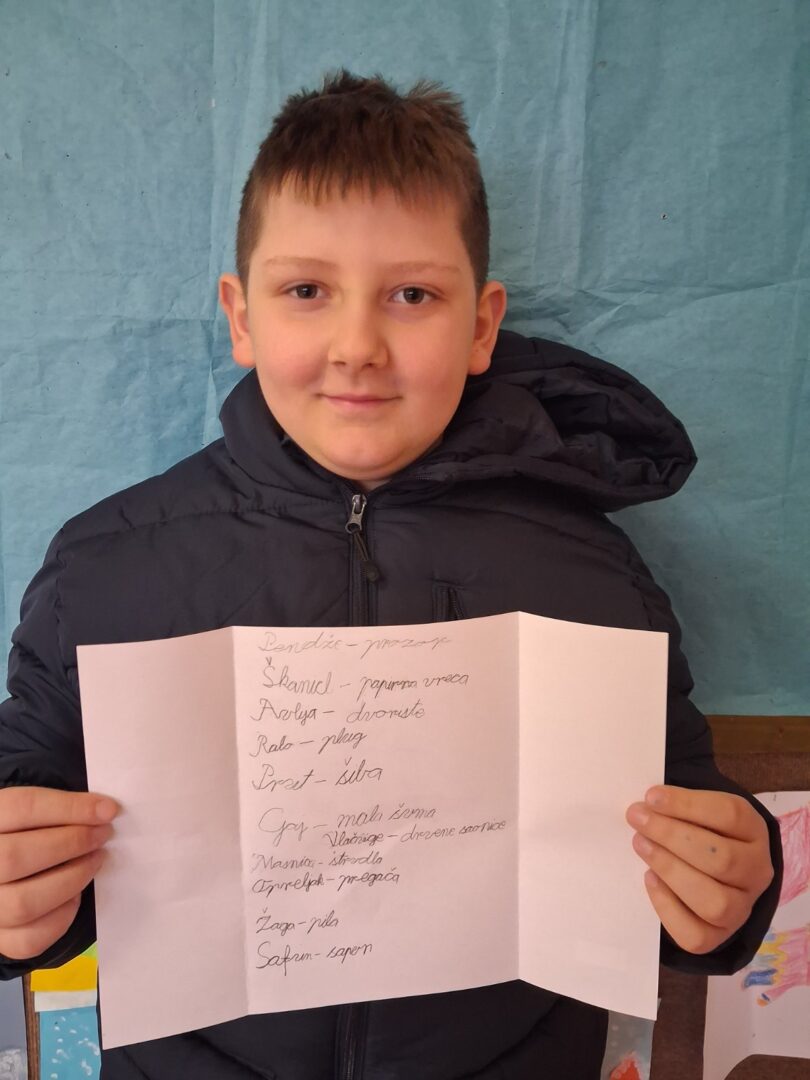 Pendže - prozor
Škanicl - papirna vreća
Avlija - dvorište
Ralo - plug
Prut - šiba
Gaj - mala šuma
Vlačuge - drvene saonice
Masnica - štrudla
Opreljak - pregača
Žaga - pila
Safun - sapun